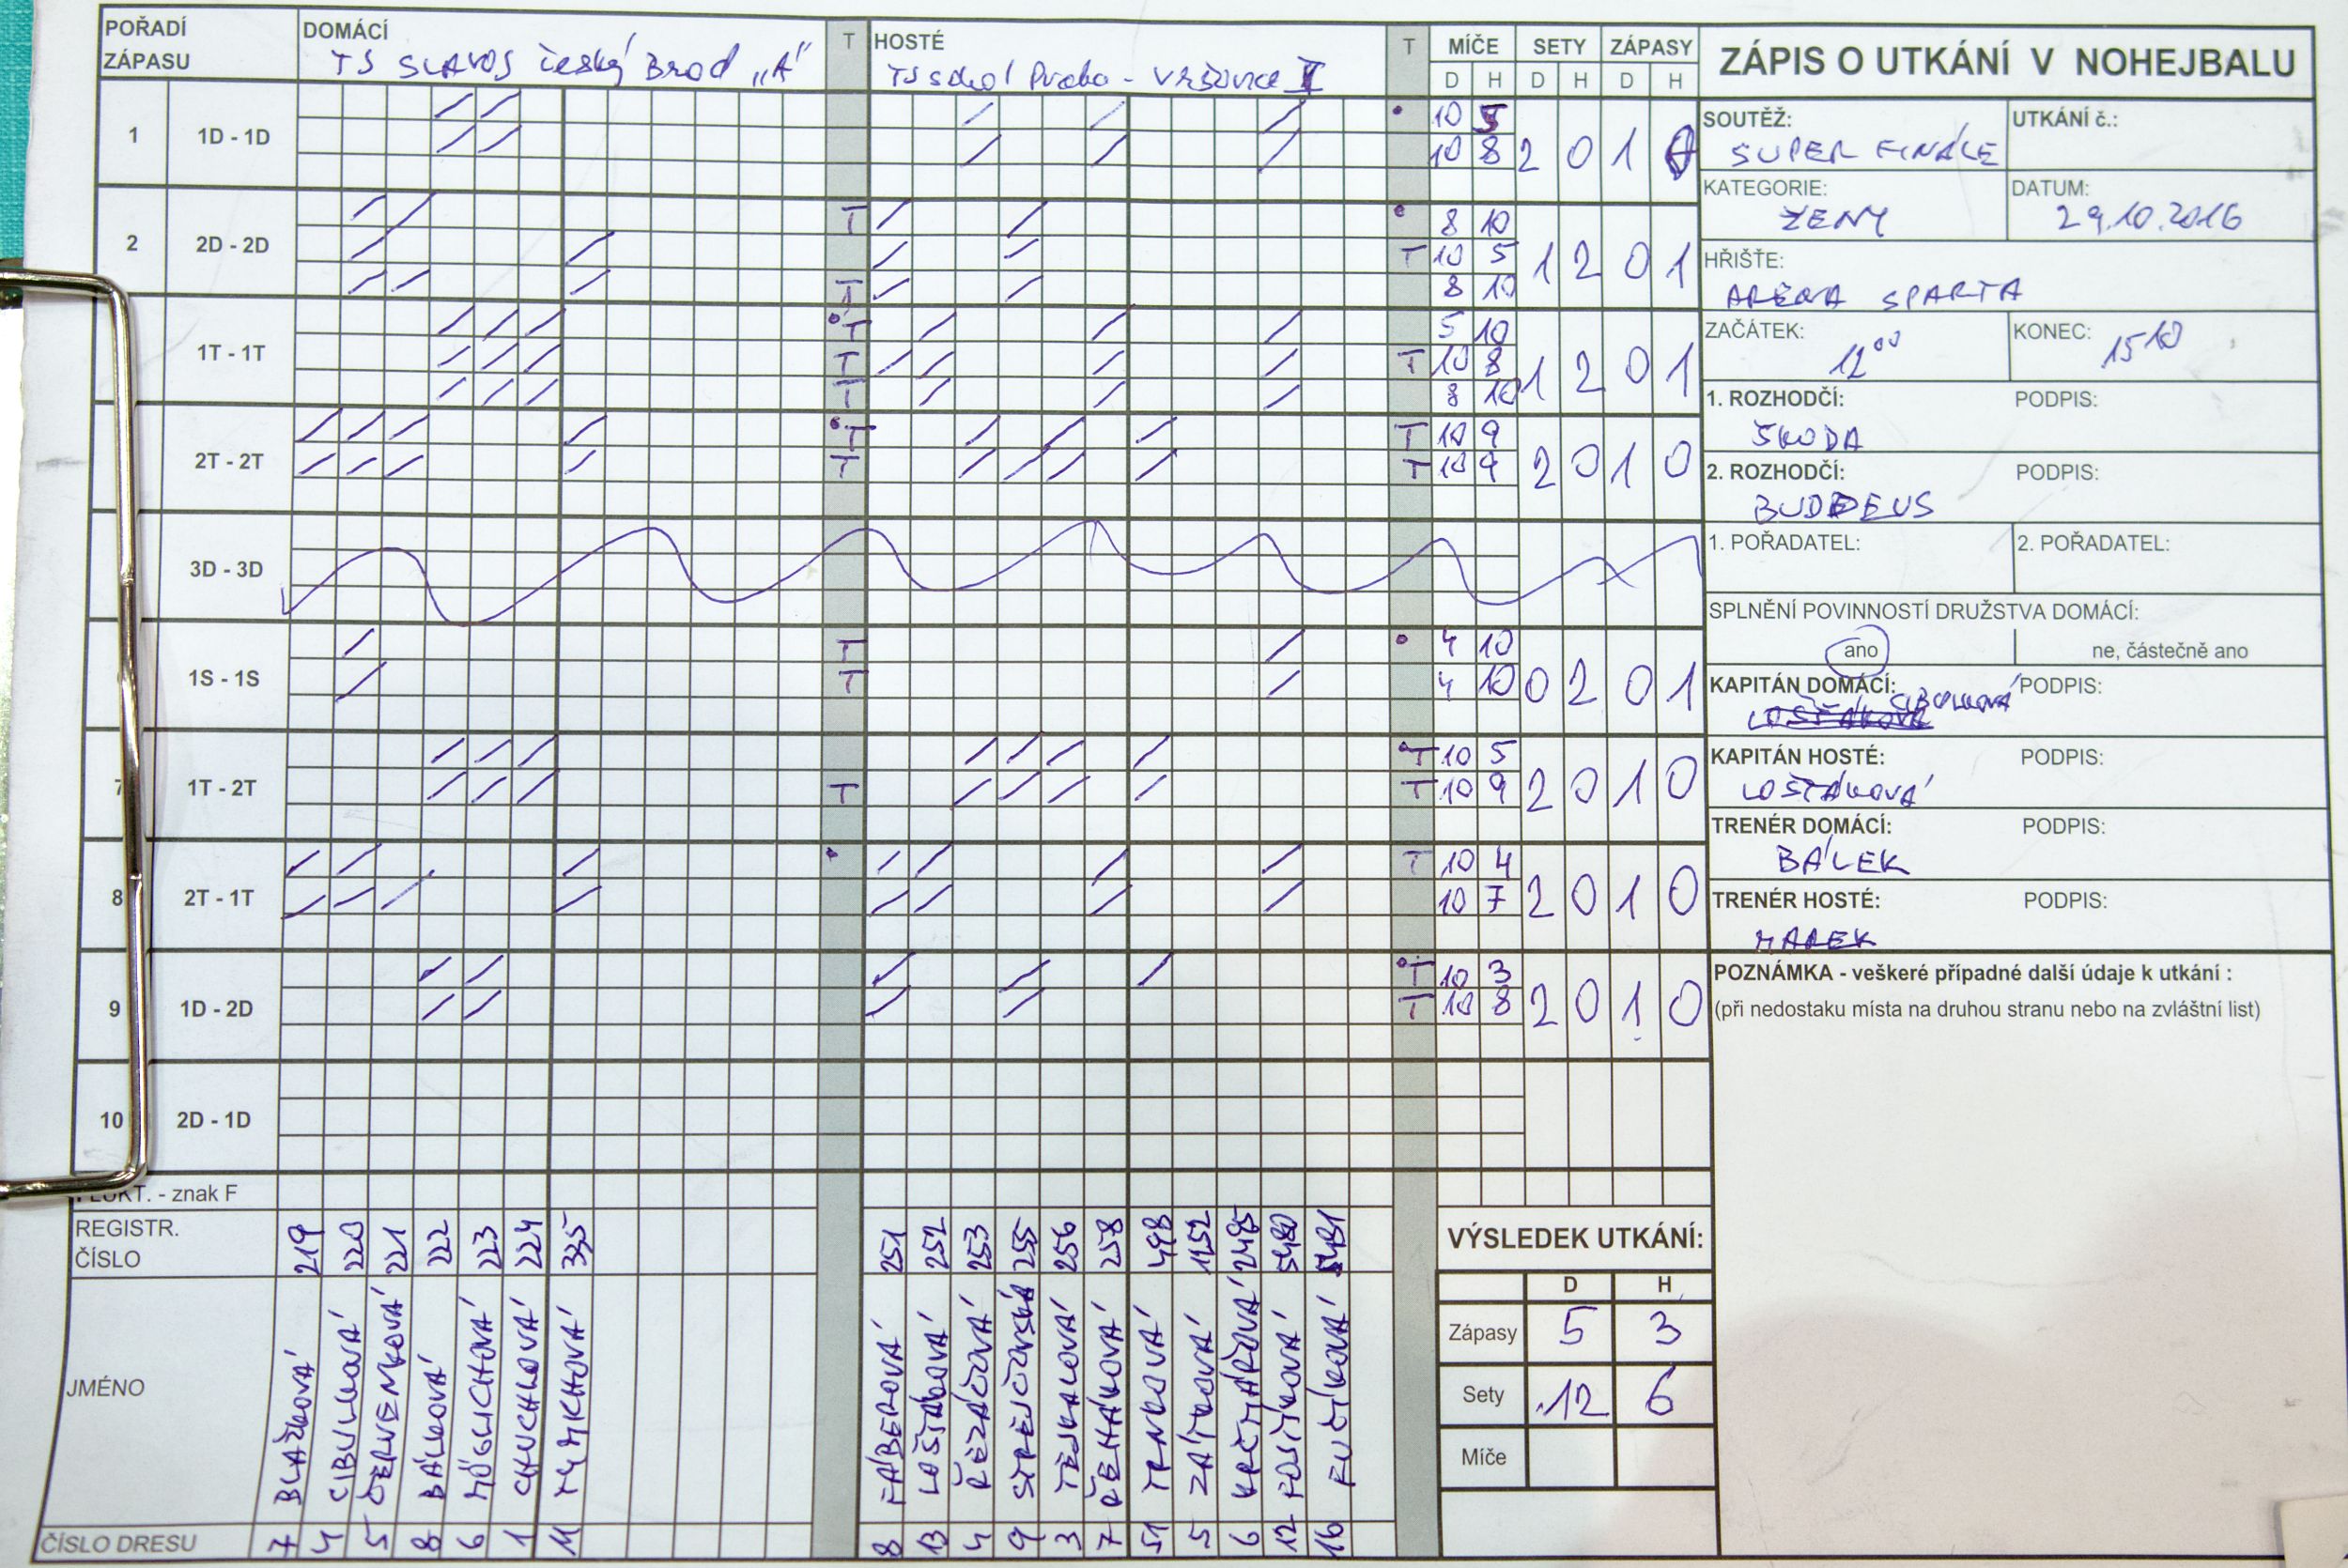 POŘADÍ
ZÁPASU
DOMÁCÍ
TJ SLAVOJ český Brod „A"
T
HOSTÉ
TJ sokol Praha - Vršovice
T
MÍČE SETY ZÁPASY
D H D H D H
ZÁPIS O UTKÁNÍ V NOHEJBALU
1 1D - 1D
10 5
10 8
2 0 1 0
2 2D - 2D
T 8 10
T 10 5
T 8 10
1 2 0 1
1T - 1T
T 5 10
T T 10 8
T 8 10
1 2 0 1
2T - 2T
T T 10 9
T T 10 9
2 0 1 0
3D - 3D
1S - 1S
T 4 10
T 4 10
0 2 0 1
7 1T - 2T
T 10 5
T T 10 9
2 0 1 0
8 2T - 1T
T 10 4
10 7
2 0 1 0
9 1D - 2D
T 10 3
T 10 8
2 0 1 0
10 2D - 1D
- znak F
REGISTR.
ČÍSLO
219 220 221 222 223 224 335
251 252 253 255 256 258 498 1152 2485 5480 5481
JMÉNO
BLAŽKOVÁ
CIBULKOVÁ
ČERVENKOVÁ
BÁLKOVÁ
MÖGLICHOVÁ
CHUCHLOVÁ
TYMICHOVÁ
FÁBEROVÁ
LOŠŤÁKOVÁ
ŘEZÁČOVÁ
STREJČOVSKÁ
TESKALOVÁ
ŘEHÁKOVÁ
TRNKOVÁ
ZÁŤKOVÁ
KRČMÁŘOVÁ
FUČÍKOVÁ
ČÍSLO DRESU
7 4 5 8 6 1 11
8 13 4 9 3 7 51 5 6 12 16
SOUTĚŽ:
SUPER FINÁLE
UTKÁNÍ č.:
KATEGORIE:
ŽENY
DATUM:
29.10.2016
HŘIŠTĚ:
ARENA SPARTA
ZAČÁTEK:
12⁰⁰
KONEC:
15¹⁰
1. ROZHODČÍ: PODPIS:
ŠKODA
2. ROZHODČÍ: PODPIS:
BUDDEUS
1. POŘADATEL: 2. POŘADATEL:
SPLNĚNÍ POVINNOSTÍ DRUŽSTVA DOMÁCÍ:
ano ne, částečně ano
KAPITÁN DOMÁCÍ: PODPIS:
CIBULKOVÁ
KAPITÁN HOSTÉ: PODPIS:
LOŠŤÁKOVÁ
TRENÉR DOMÁCÍ: PODPIS:
BÁLEK
TRENÉR HOSTÉ: PODPIS:
MAREK
POZNÁMKA - veškeré případné další údaje k utkání :
(při nedostaku místa na druhou stranu nebo na zvláštní list)
VÝSLEDEK UTKÁNÍ:
D H
Zápasy 5 3
Sety 12 6
Míče